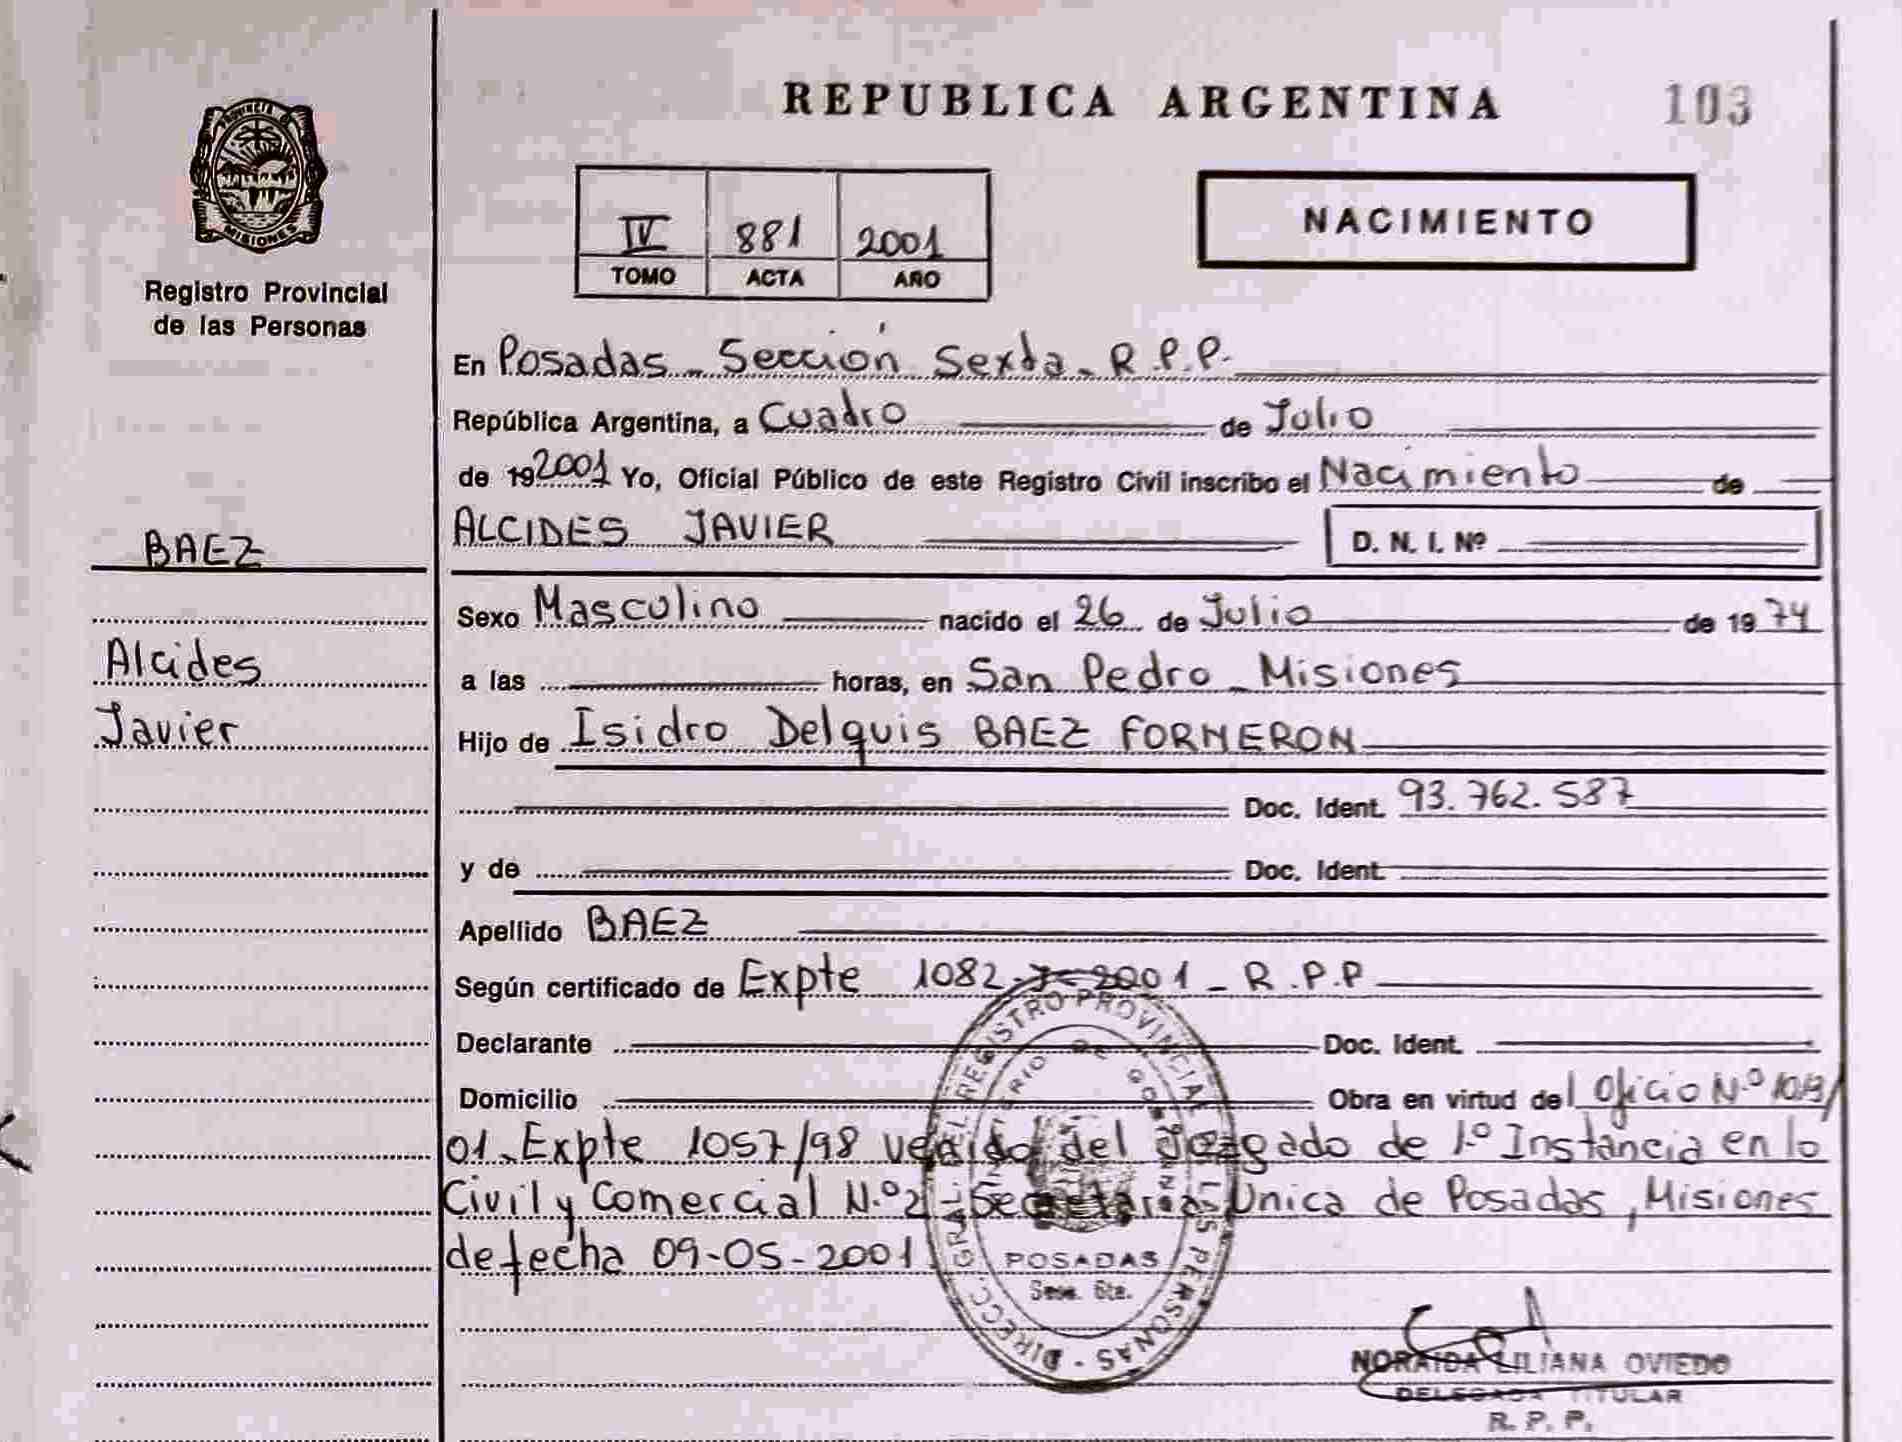 REPUBLICA ARGENTINA 103
PROVINCIA D
MISIONES
Registro Provincial
de las Personas
IV 881 2001
TOMO ACTA AÑO
NACIMIENTO
En Posadas - Sección Sexta - R.P.P.
República Argentina, a Cuatro de Julio
de 19 2001 Yo, Oficial Público de este Registro Civil inscribo el Nacimiento de
ALCIDES JAVIER D. N. I. Nº
BAEZ
Sexo Masculino nacido el 26 de Julio de 19 74
Alcides
a las horas, en San Pedro - Misiones
Javier
Hijo de Isidro Delquis BAEZ FORNERON
Doc. Ident. 93.762.587
y de Doc. Ident.
Apellido BAEZ
Según certificado de Expte 1082 2001 - R.P.P
Declarante Doc. Ident.
Domicilio Obra en virtud del Oficio N.º
01 - Expte 1057/98 venido del Juzgado de 1.º Instancia en lo
Civil y Comercial N.º 2 - Secretaria Unica de Posadas, Misiones
de fecha 09-05-2001
DIRECC. GRAL. REGISTRO PROVINCIAL PERSONAS
POSADAS
NORAIDA LILIANA OVIEDO
DELEGADA TITULAR
R. P. P.